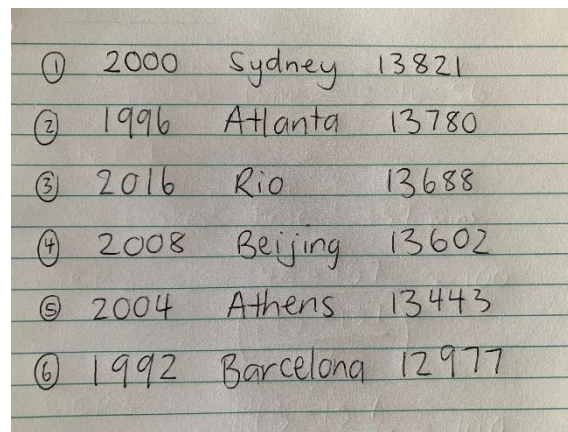 ① 2000 Sydney 13821
② 1996 Atlanta 13780
③ 2016 Rio 13688
④ 2008 Beijing 13602
⑤ 2004 Athens 13443
⑥ 1992 Barcelona 12977